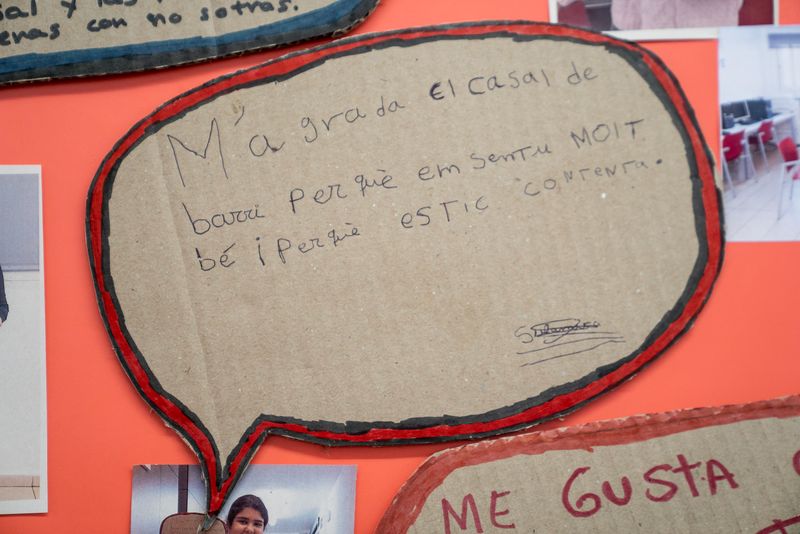 sal y las
enas con no sotras.
M'a grada el casal de
barri perquè em sentu MOLT
bé i perquè ESTIC CONTENTA.
ME GUSTA